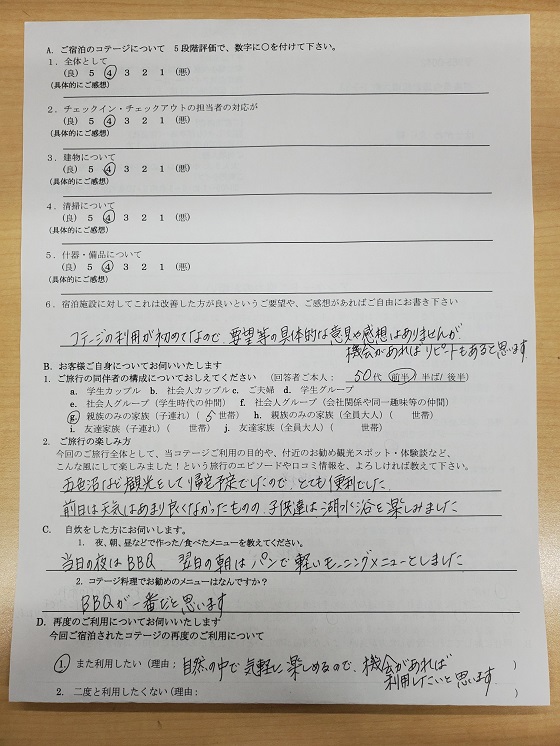 A. ご宿泊のコテージについて 5段階評価で、数字に○を付けて下さい。
1. 全体として
(良) 5 4 3 2 1 (悪)
(具体的にご感想)
2. チェックイン・チェックアウトの担当者の対応が
(良) 5 4 3 2 1 (悪)
(具体的にご感想)
3. 建物について
(良) 5 4 3 2 1 (悪)
(具体的にご感想)
4. 清掃について
(良) 5 4 3 2 1 (悪)
(具体的にご感想)
5. 什器・備品について
(良) 5 4 3 2 1 (悪)
(具体的にご感想)
6. 宿泊施設に対してこれは改善した方が良いというご要望や、ご感想があればご自由にお書き下さい
コテージの利用が初めてなので、要望等の具体的な意見や感想はありませんが、
機会があればリピートもあると思います
B. お客様ご自身についてお伺いいたします
1. ご旅行の同伴者の構成についておしえてください (回答者ご本人: 50代 前半/ 半ば/ 後半)
a. 学生カップル b. 社会人カップル c. ご夫婦 d. 学生グループ
e. 社会人グループ (学生時代の仲間) f. 社会人グループ (会社関係や同一趣味等の仲間)
g. 親族のみの家族 (子連れ) ( 5 世帯) h. 親族のみの家族 (全員大人) ( 世帯)
i. 友達家族 (子連れ) ( 世帯) j. 友達家族 (全員大人) ( 世帯)
2. ご旅行の楽しみ方
今回のご旅行全体として、当コテージご利用の目的や、付近のお勧め観光スポット・体験談など、
こんな風にして楽しみました!という旅行のエピソードや口コミ情報を、よろしければ教えて下さい。
五色沼など観光をして帰宅予定でしたので、とても便利でした、
前日は天気はあまり良くなかったものの、子供達は湖水浴を楽しみました
C. 自炊をした方にお伺いします。
1. 夜、朝、昼などで作った/食べたメニューを教えてください。
当日の夜はBBQ 翌日の朝はパンで軽いモーニングメニューとしました
2. コテージ料理でお勧めのメニューはなんですか?
BBQが一番だと思います
D. 再度のご利用についてお伺いいたします
今回ご宿泊されたコテージの再度のご利用について
1. また利用したい (理由; 自然の中で気軽に楽しめるので、機会があれば
利用したいと思います )
2. 二度と利用したくない (理由: )